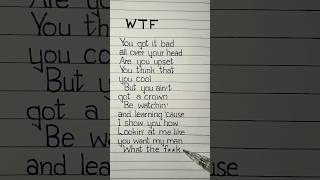 WTF
You got it bad
all over your head
Are you upset
You think that
you cool
"But you ain't
got a crown
"Be watchin'
and learning 'cause
I show you how
Lookin' at me like
you want my man
"What the f**k